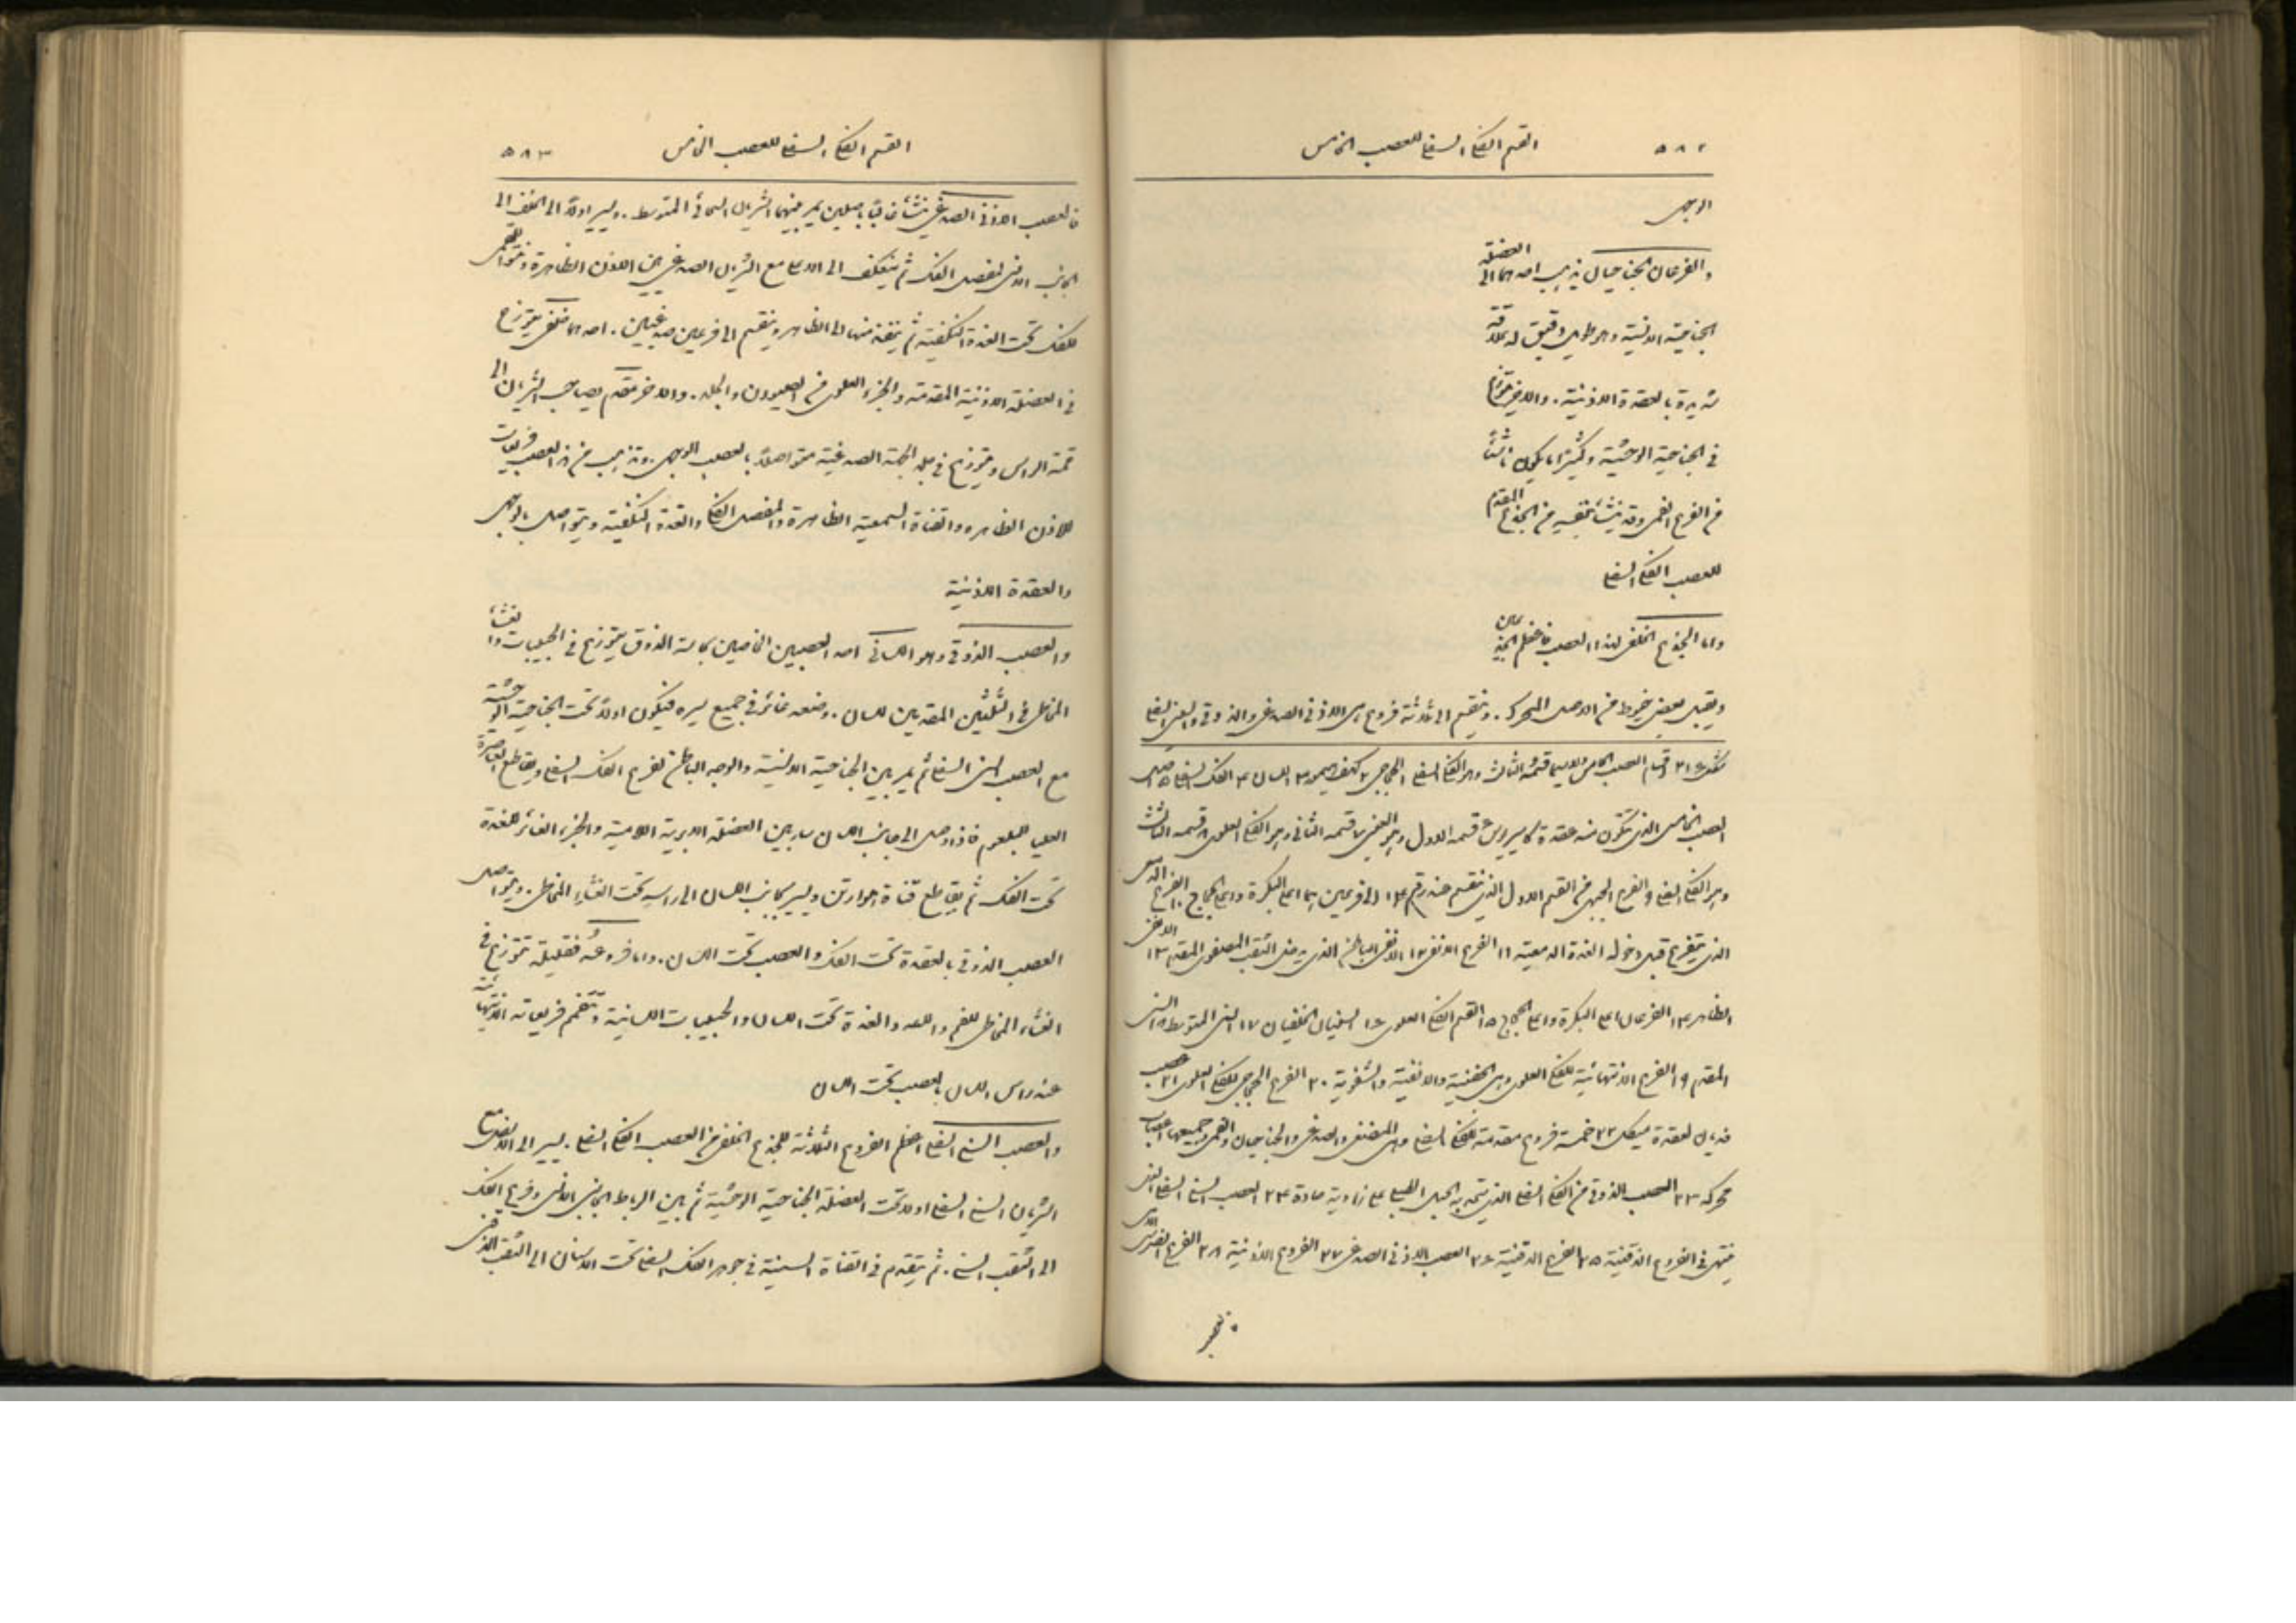 ٥٨٢ القسم الفكي السفلي للعصب الخامس
الوجهي
والفرعان الجناحيان يذهب احدهما الى العضلة
الجناحية الانسية وهو طويل دقيق له علاقة
شديدة بالعقدة الاذنية. والاخر يتوزع
في الجناحية الوحشية وكثيرا ما يكون ناشئًا
من الفرع الفمي وقد ينشأ بنفسه من الجذع المقدم
للعصب الفكي السفلي
واما الجذع الخلفي لهذا العصب فاعظم الجذعين
ويقبل بعض خيوط من الاصل المحرك. وينقسم الى ثلاثة فروع هي الاذني الصدغي والذوقي والسني السفلي
شكل ٢١٦ اقسام العصب الخامس ولاسيما قسمه الثالث وهو الفكي السفلي ١ الحجاج ٢ كهف هيمور ٣ اللسان ٤ الفك السفلي ٥ اصل
العصب الخامس الذي تتكون منه عقدة كاسيروس ٦ قسمه الاول وهو العيني ٧ قسمه الثاني وهو الفكي العلوي ٨ قسمه الثالث
وهو الفكي السفلي ٩ الفرع الجبهي من القسم الاول الذي ينقسم عند رقم ١٤ الى فرعين هما اعلى البكرة واعلى الحجاج ١٠ الفرع الدمعي
الذي يتفرع قبل دخوله الغدة الدمعية ١١ الفرع الانفي ١٢ الانفي الباطن الذي يدخل الثقب المصفوي المقدم ١٣ الانفي
الظاهر ١٤ الفرعان اعلى البكرة واعلى الحجاج ١٥ القسم الفكي العلوي ١٦ السنيان الخلفيان ١٧ السني المتوسط ١٨ السني
المقدم ١٩ الفروع الانتهائية للفكي العلوي وهي الجفنية والانفية والشفوية ٢٠ الفرع الحجاجي للفكي العلوي ٢١ عصب
فديان لعقدة ميكل ٢٢ خمسة فروع مقدمة للفكي السفلي وهي المضغي والصدغي والجناحيان والفمي وجميعها اعصاب
محركة ٢٣ العصب الذوقي من الفكي السفلي الذي يتحد به الحبل الطبلي على زاوية حادة ٢٤ العصب السني السفلي الذي
ينتهي في الفروع الذقنية ٢٥ الفروع الذقنية ٢٦ العصب الاذني الصدغي ٢٧ الفروع الاذنية ٢٨ الفرع الضرسي
القسم الفكي السفلي للعصب الخامس ٥٨٣
فالعصب الاذني الصدغي ينشأ غالبًا باصلين يمر بينهما الشريان السحائي المتوسط. ويسير اولًا الى الخلف الى
الجانب الانسي لمفصل الفك ثم ينعكف الى الاعلى مع الشريان الصدغي بين الاذن الظاهرة ونتوء اللقمي
للفك تحت الغدة النكفية ثم ينفذ منها الى الظاهر وينقسم الى فرعين صدغيين. احدهما خلفي يتوزع
في العضلة الاذنية المقدمة والجزء العلوي من الصيوان والجلد. والاخر مقدم يصاحب الشريان الى
قمة الراس ويتوزع في جلد الجهة الصدغية متواصلًا بالعصب الوجهي. وتذهب من هذا العصب فريعات
للاذن الظاهرة والقناة السمعية الظاهرة والمفصل الفكي والغدة النكفية ويتواصل بالوجهي
والعقدة الاذنية
والعصب الذوقي وهو اللساني احد العصبين الخاصين بحاسة الذوق يتوزع في الحليمات والغشاء
المخاطي في الثلثين المقدمين للسان. وضعه غائر في جميع سيره فيكون اولًا تحت الجناحية الوحشية
مع العصب السني السفلي ثم يمر بين الجناحية الانسية والوجه الباطن لفرع الفك السفلي ويقاطع العاصرة
العليا للبلعوم فاذا وصل الى جانب اللسان سار بين العضلة الابرية اللامية والجزء الغائر للغدة
تحت الفك ثم يقاطع قناة هوارتن ويسير بجانب اللسان الى راسه تحت الغشاء المخاطي. ويتواصل
العصب الذوقي بالعقدة تحت الفك والعصب تحت اللسان. واما فروعه فقليلة تتوزع في
الغشاء المخاطي للفم واللثة والغدة تحت اللسان والحليمات اللسانية وتنضم فريعاته الانتهائية
عند راس اللسان بالعصب تحت اللسان
والعصب السني السفلي اعظم الفروع الثلاثة للجذع الخلفي من العصب الفكي السفلي. يسير الى الاسفل مع
الشريان السني السفلي اولا تحت العضلة الجناحية الوحشية ثم بين الرباط الجانبي الانسي وفرع الفك
الى الثقب السني. ثم يتقدم في القناة السنية في جوهر الفك السفلي تحت الاسنان الى الثقب الذقني